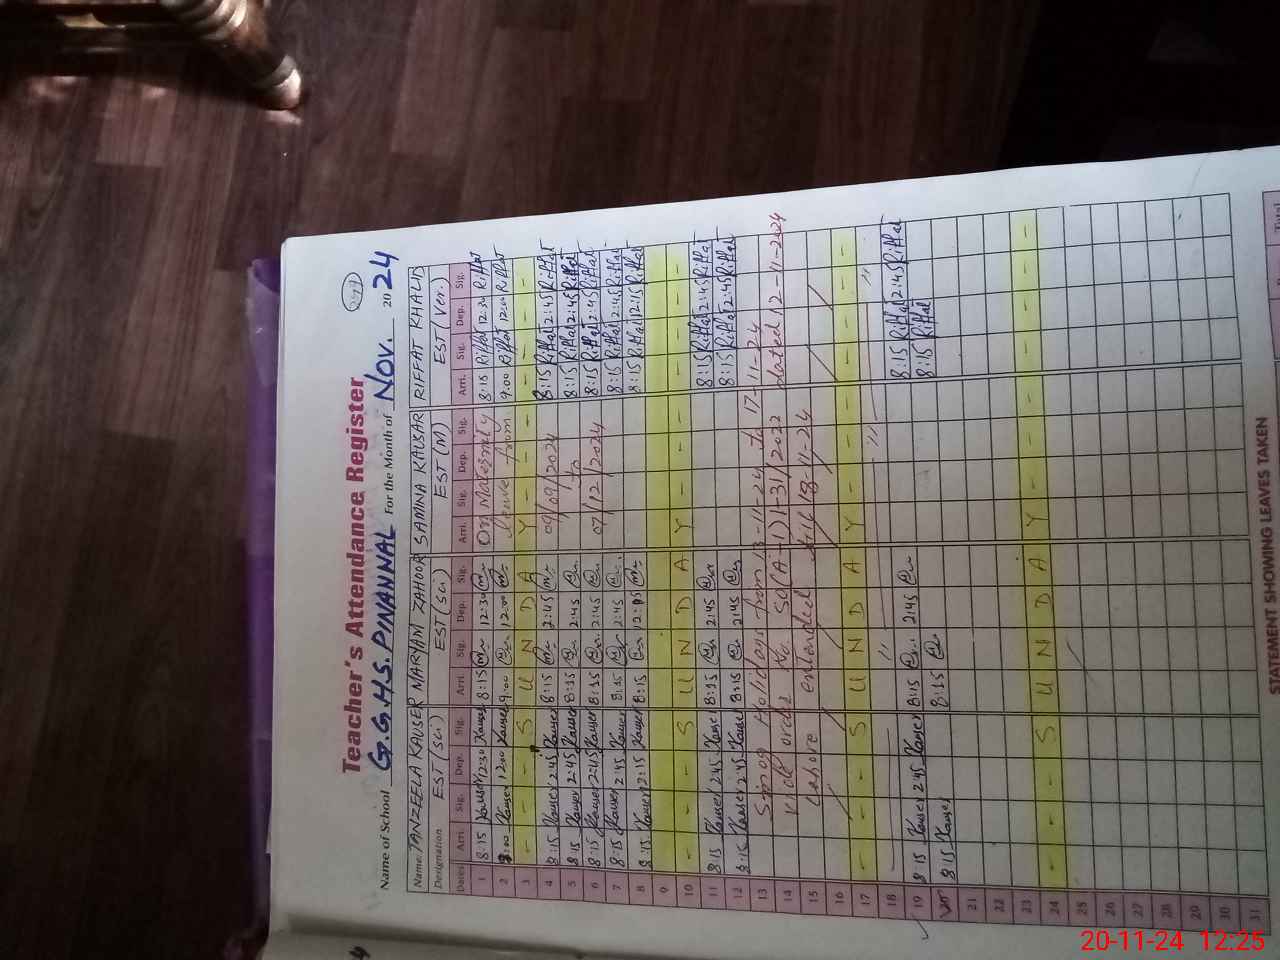 254
Teacher's Attendance Register
Name of School G.G.H.S. PINANNAL For the Month of Nov. 2024
Name: TANZEELA KAUSER MARYAM ZAHOOR SAMINA KAUSAR RIFFAT KHALID
Designation EST (Sci) EST (Sci) EST (M) EST (Ver.)
Dates Arri. Sig. Dep. Sig. Arri. Sig. Dep. Sig. Arri. Sig. Dep. Sig. Arri. Sig. Dep. Sig.
1 8:15 Kauser 12:30 Kauser 8:15 12:30 On Maternity 8:15 Riffat 12:30 Riffat
2 8:00 Kauser 12:00 Kauser 9:00 12:00 leave from 9:00 Riffat 12:00 Riffat
3 - - - S U N D A Y - - - - - - -
4 8:15 Kauser 2:45 Kauser 8:15 2:45 /09/2024 8:15 Riffat 2:45 Riffat
5 8:15 Kauser 2:45 Kauser 8:15 2:45 to 8:15 Riffat 2:45 Riffat
6 8:15 Kauser 2:45 Kauser 8:15 2:45 07/12/2024 8:15 Riffat 2:45 Riffat
7 8:15 Kauser 2:45 Kauser 8:15 2:45 8:15 Riffat 2:45 Riffat
8 8:15 Kauser 12:15 Kauser 8:15 12:15 8:15 Riffat 12:15 Riffat
9
10 - - - S U N D A Y - - - - - - -
11 8:15 Kauser 2:45 Kauser 8:15 2:45 8:15 Riffat 2:45 Riffat
12 8:15 Kauser 2:45 Kauser 8:15 2:45 8:15 Riffat 2:45 Riffat
13 Smog Holidays from 13-11-24 to 17-11-24
14 vide order No. SO(A-1)1-31/2022 dated 12-11-2024
15 Lahore extended till 18-11-24
16
17 - - - S U N D A Y - - - - - - -
18
19 8:15 Kauser 2:45 Kauser 8:15 2:45 8:15 Riffat 2:45 Riffat
20 8:15 Kauser 8:15 8:15 Riffat
21
22
23
24 - - - S U N D A Y - - - - - - -
25
26
27
28
29
30
31
STATEMENT SHOWING LEAVES TAKEN
20-11-24 12:25